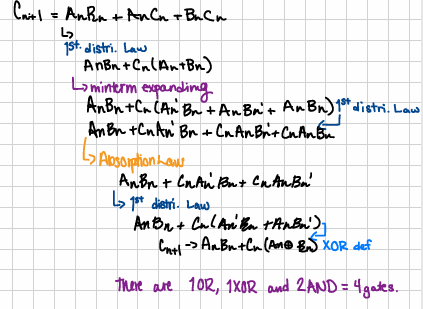 Cn+1 = AnBn + AnCn + BnCn
↳ 1st. distri. Law
AnBn + Cn(An+Bn)
↳ minterm expanding
AnBn + Cn(An'Bn + AnBn' + AnBn) 1st distri. Law
AnBn + CnAn'Bn + CnAnBn' + CnAnBn
↳ Absorption Law
AnBn + CnAn'Bn + CnAnBn'
↳ 1st distri. Law
AnBn + Cn(An'Bn + AnBn')
Cn+1 → AnBn + Cn(An⊕Bn) XOR def
there are 1OR, 1XOR and 2AND = 4gates.